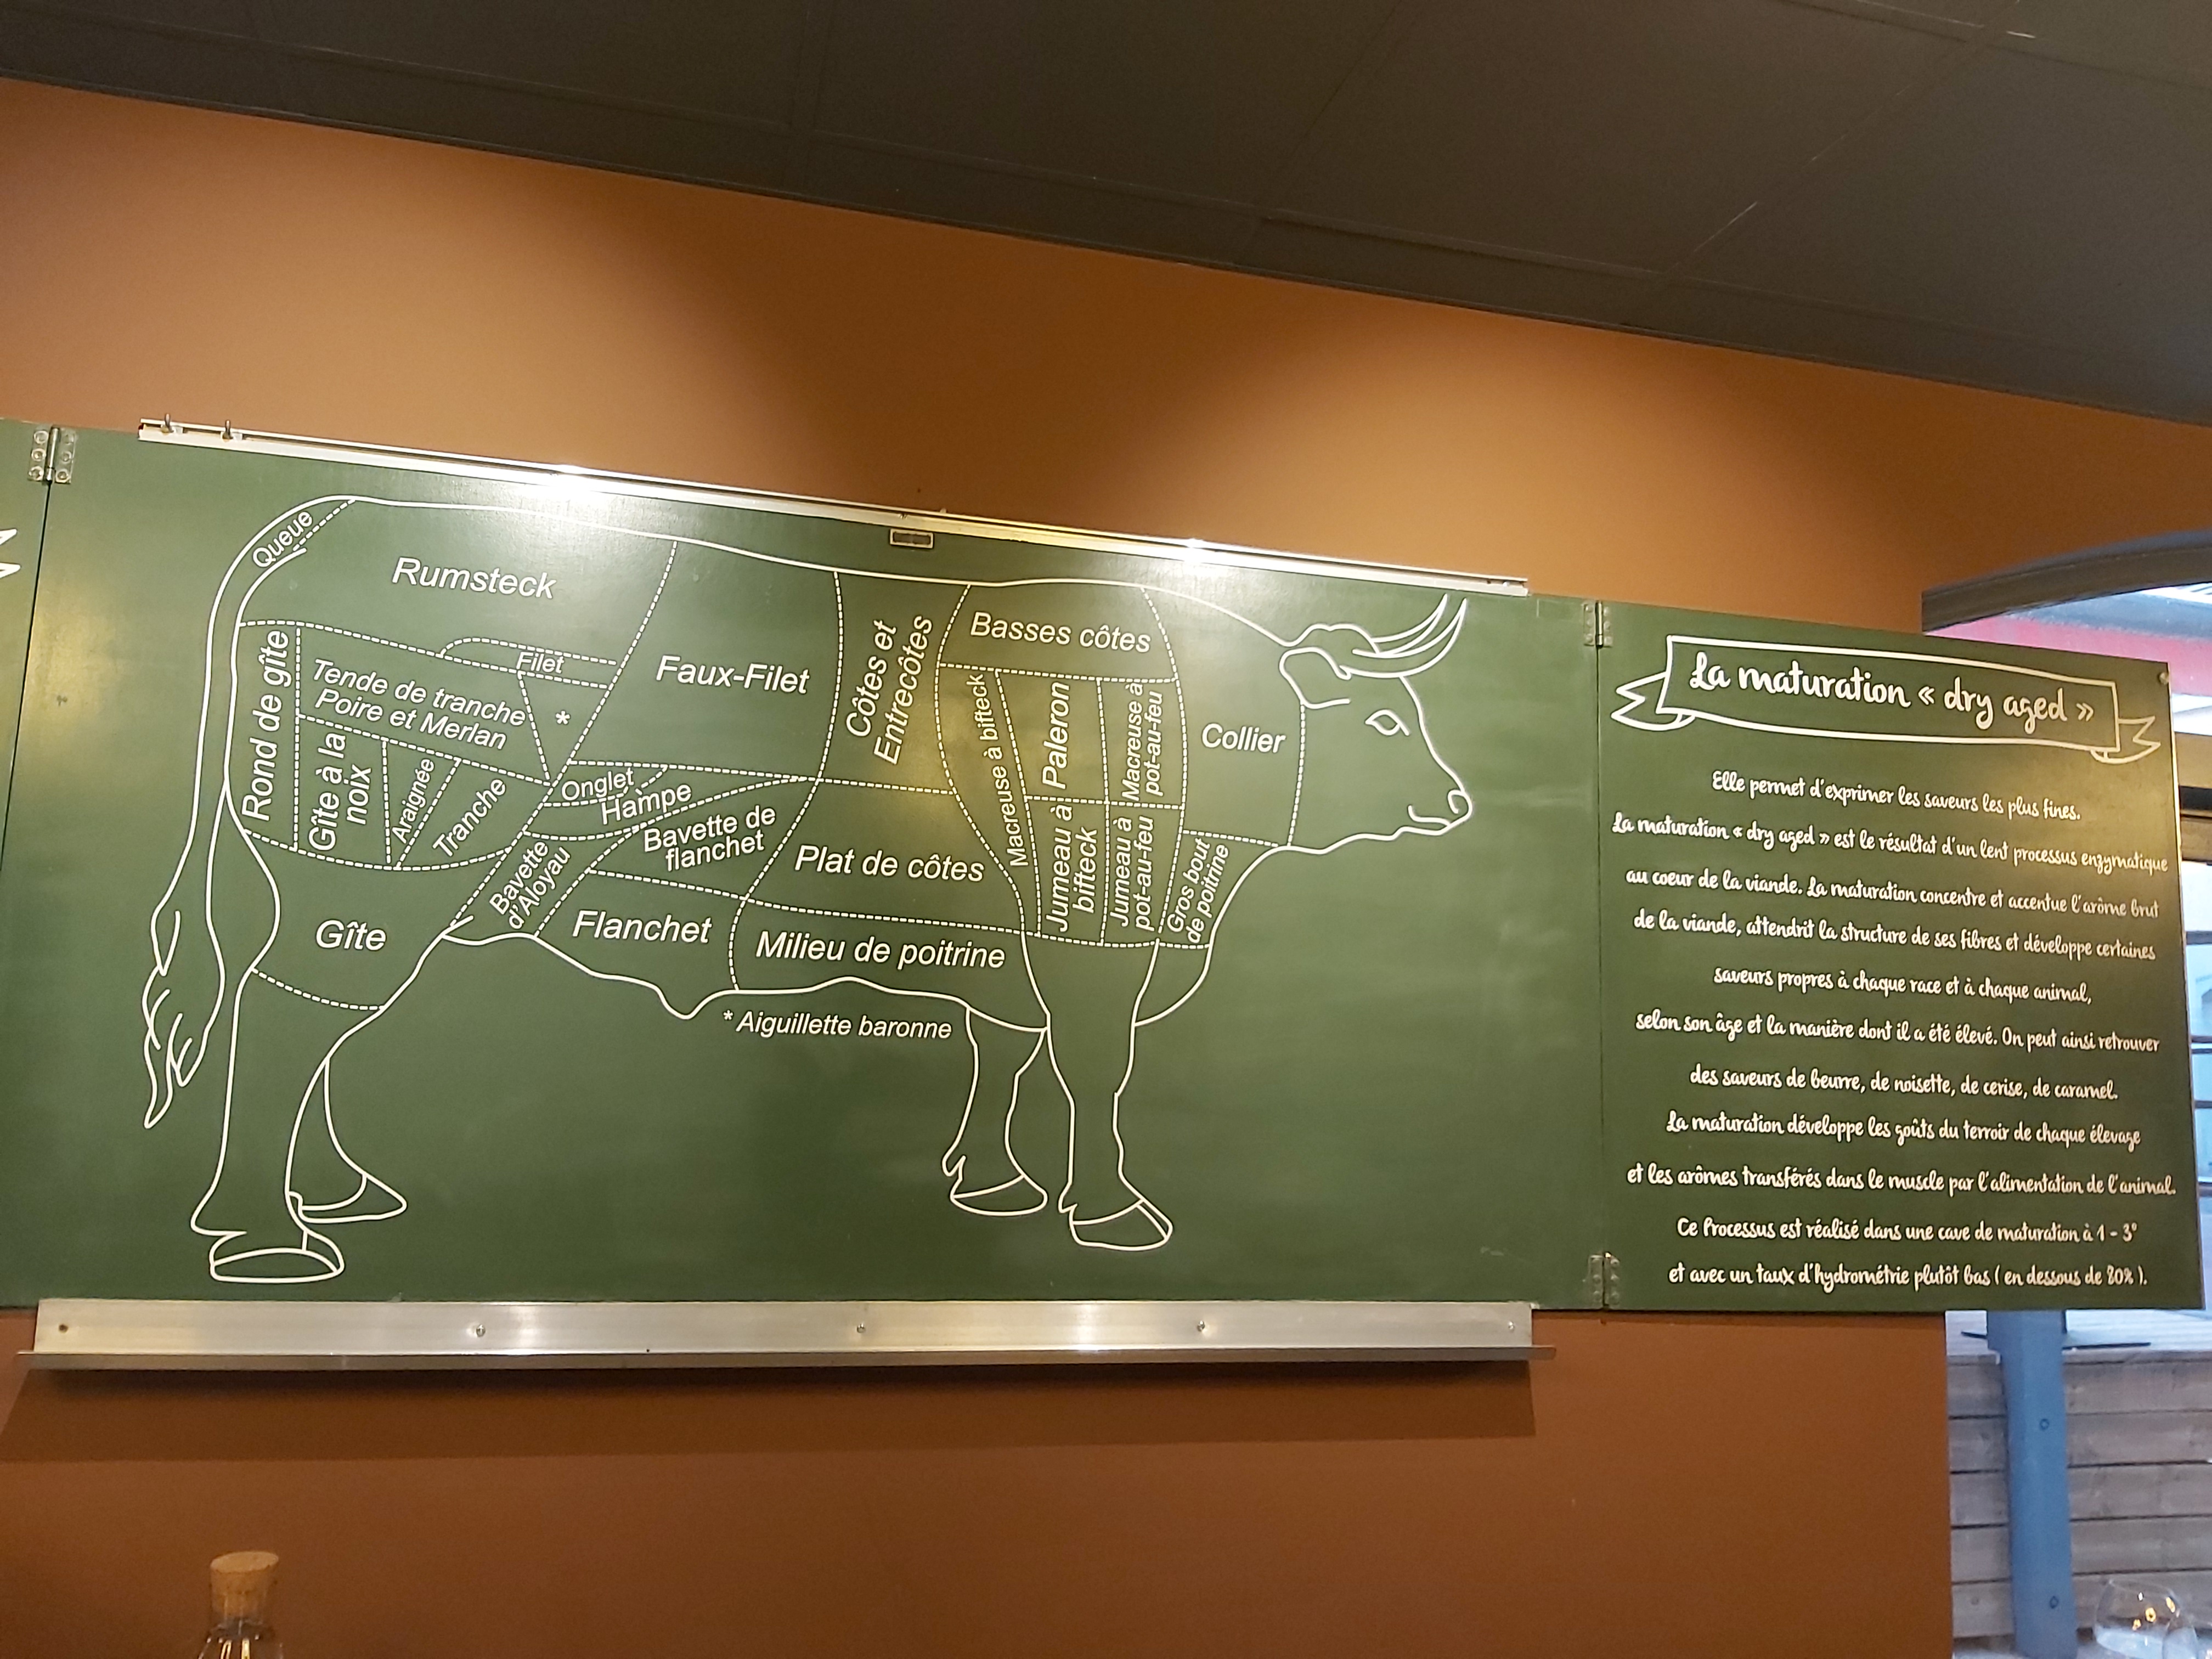 Queue
Rumsteck
Filet
Faux-Filet
Côtes et
Entrecôtes
Basses côtes
Rond de gîte
Tende de tranche
Poire et Merlan
*
Gîte à la
noix
Araignée
Tranche
Onglet
Hampe
Bavette de
flanchet
Bavette
d'Aloyau
Macreuse à bifteck
Paleron
Macreuse à
pot-au-feu
Collier
Jumeau à
bifteck
Jumeau à
pot-au-feu
Gros bout
de poitrine
Plat de côtes
Gîte
Flanchet
Milieu de poitrine
* Aiguillette baronne
La maturation « dry aged »
Elle permet d'exprimer les saveurs les plus fines.
La maturation « dry aged » est le résultat d'un lent processus enzymatique
au coeur de la viande. La maturation concentre et accentue l'arôme brut
de la viande, attendrit la structure de ses fibres et développe certaines
saveurs propres à chaque race et à chaque animal,
selon son âge et la manière dont il a été élevé. On peut ainsi retrouver
des saveurs de beurre, de noisette, de cerise, de caramel.
La maturation développe les goûts du terroir de chaque élevage
et les arômes transférés dans le muscle par l'alimentation de l'animal.
Ce Processus est réalisé dans une cave de maturation à 1 - 3°
et avec un taux d'hydrométrie plutôt bas ( en dessous de 80% ).